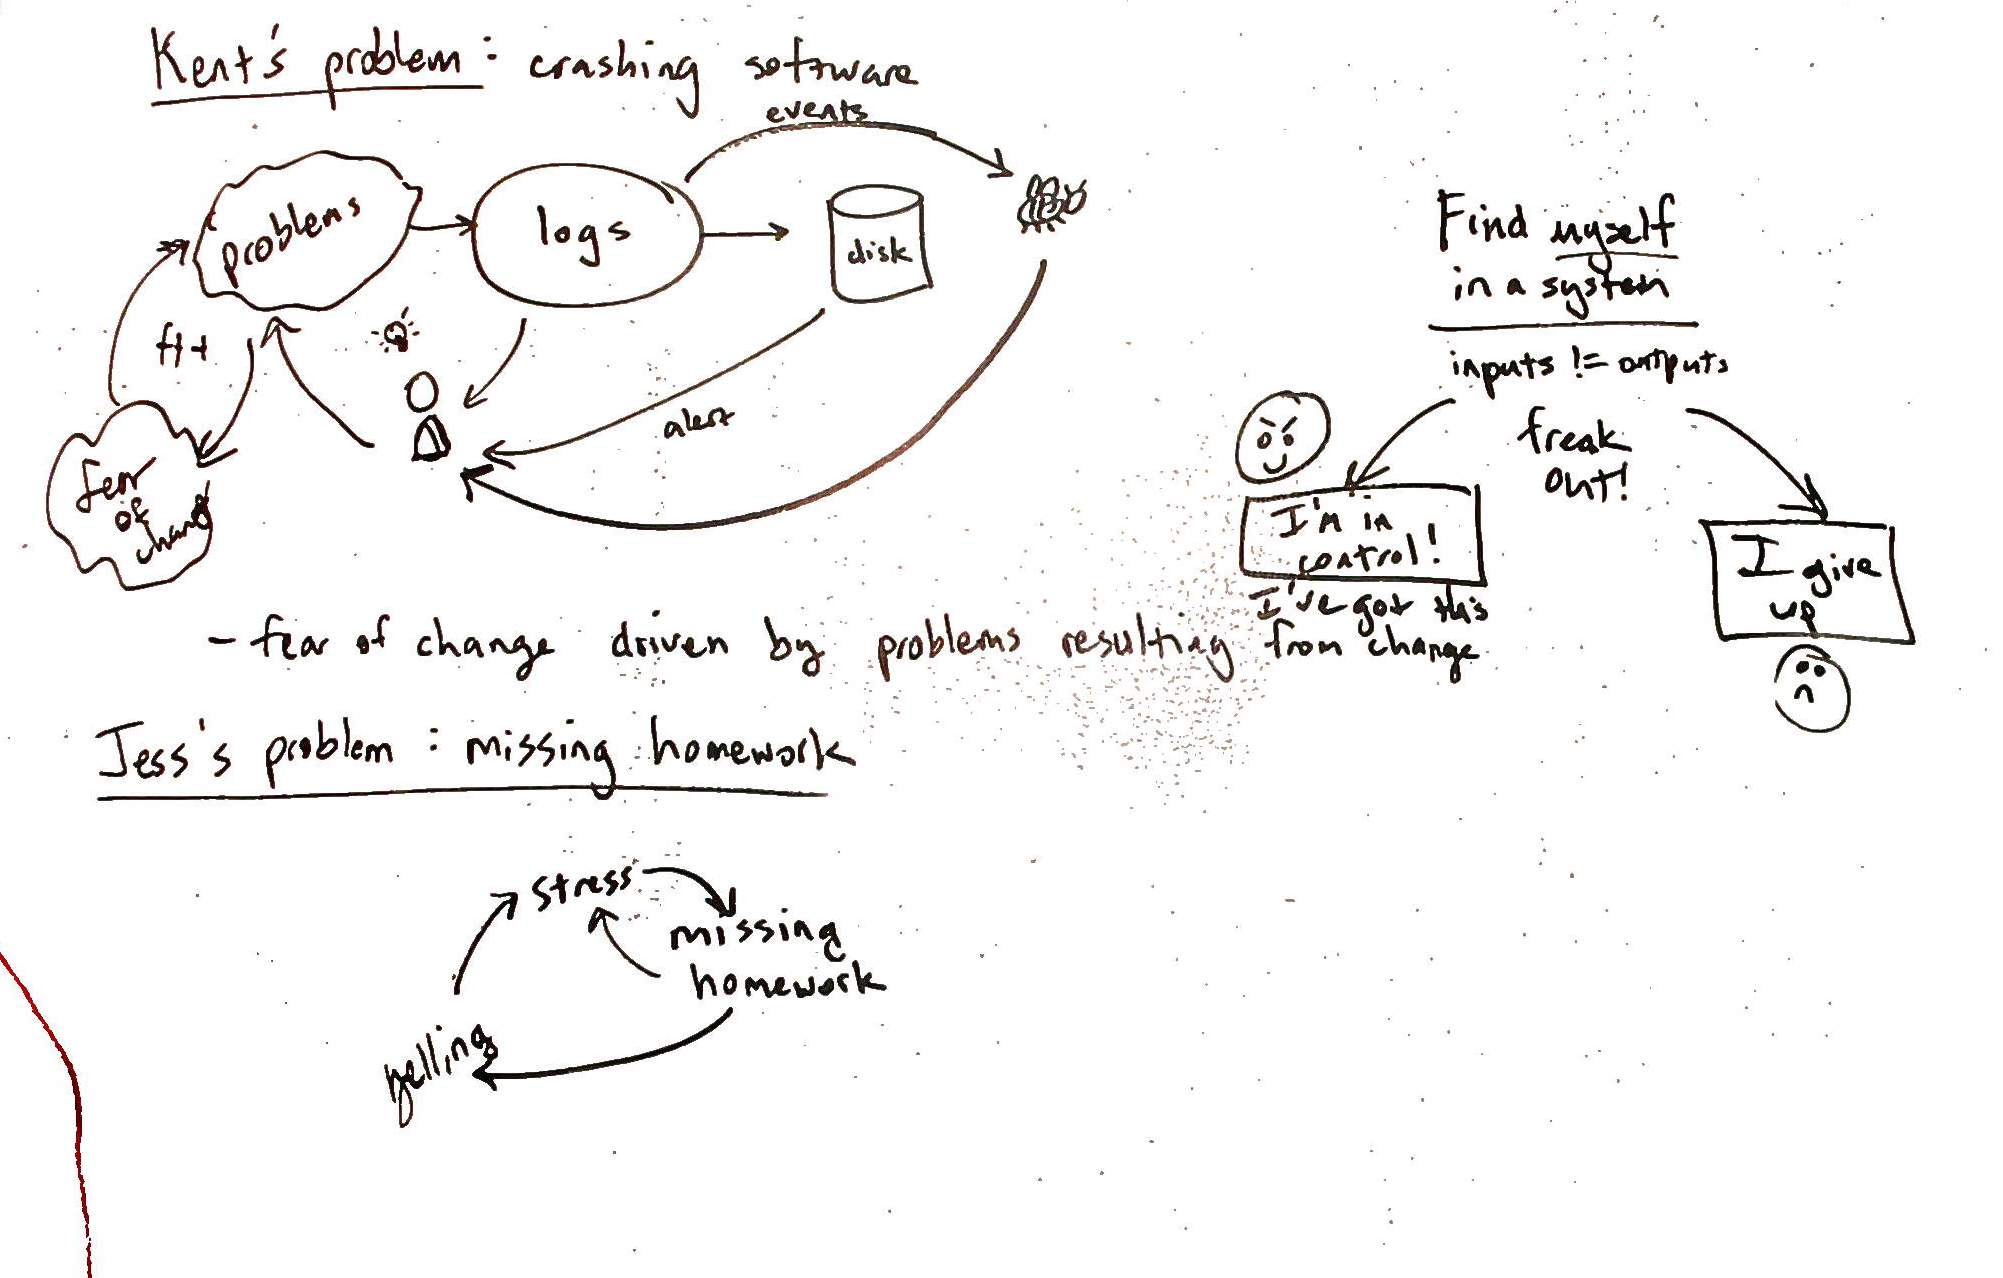 Kent's problem : crashing software
events
problems
logs
disk
alert
fear
of
- fear of change driven by problems resulting from change
Find myself
in a system
inputs != outputs
freak
out!
I'm in
control!
I've got this
I give
up
Jess's problem : missing homework
stress
missing
homework
yelling